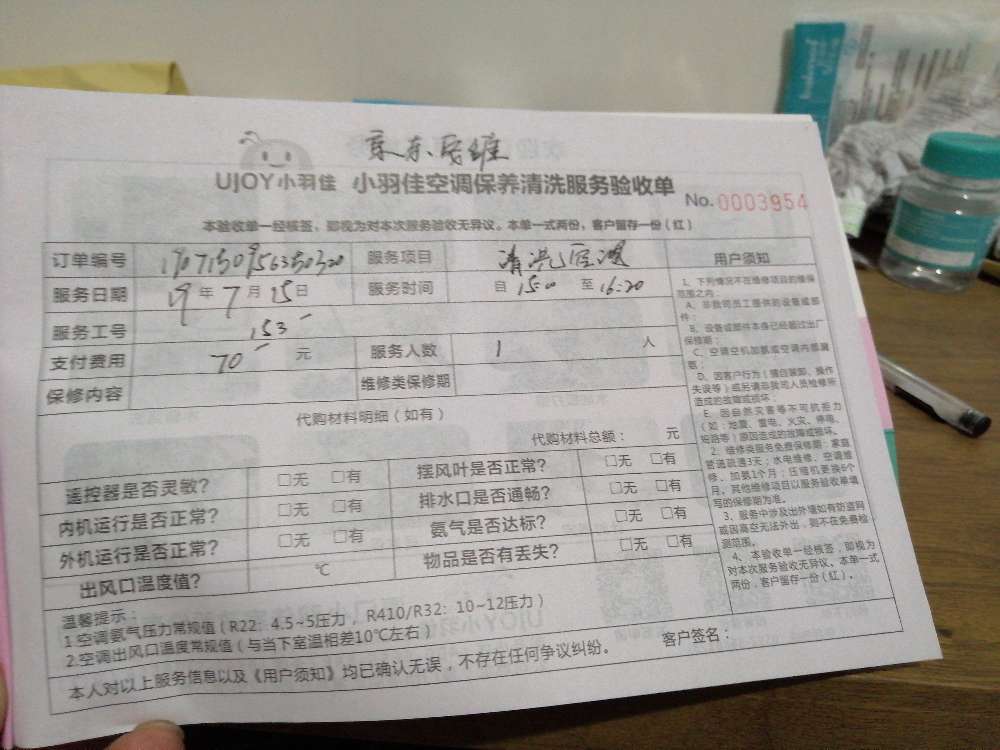 京东居维
UJOY小羽佳 小羽佳空调保养清洗服务验收单
No.0003954
本验收单一经核签，即视为对本次服务验收无异议。本单一式两份，客户留存一份（红）
订单编号 服务项目 清洗空调 用户须知
服务日期 19年7月15日 服务时间 自15:00至16:20
服务工号 153
支付费用 70元 服务人数 1人
保修内容 维修类保修期
代购材料明细（如有）
代购材料总额： 元
遥控器是否灵敏？ □无 □有 摆风叶是否正常？ □无 □有
内机运行是否正常？ □无 □有 排水口是否通畅？ □无 □有
外机运行是否正常？ □无 □有 氨气是否达标？ □无 □有
出风口温度值？ ℃ 物品是否有丢失？ □无 □有
1、下列情况不在维修项目的维保
范围之内：
A、非我司员工提供的设备或部
件；
B、设备或部件本身已经超过出厂
保修期；
C、空调空机加氨或空调内漏漏
氨；
D、因客户行为（擅自装卸、操作
失误等）或另请非我司人员检修所
造成的故障或损坏；
E、因自然灾害等不可抗拒力
（如：地震、雷电、火灾、停电、
短路等）原因造成的故障或损坏。
2、维修类服务免费保修期：家庭
管道疏通3天；水电维修、空调维
修、加氨1个月；压缩机更换6个
月。其他维修项目以服务验收单填
写的保修期为准。
3、服务中涉及出外墙如有防盗网
或因高空无法外出，则不在免费检
测范围。
4、本验收单一经核签，即视为
对本次服务验收无异议。本单一式
两份，客户留存一份（红）。
温馨提示：
1.空调氨气压力常规值（R22：4.5~5压力，R410/R32：10~12压力）
2.空调出风口温度常规值（与当下室温相差10℃左右）
本人对以上服务信息以及《用户须知》均已确认无误，不存在任何争议纠纷。 客户签名：